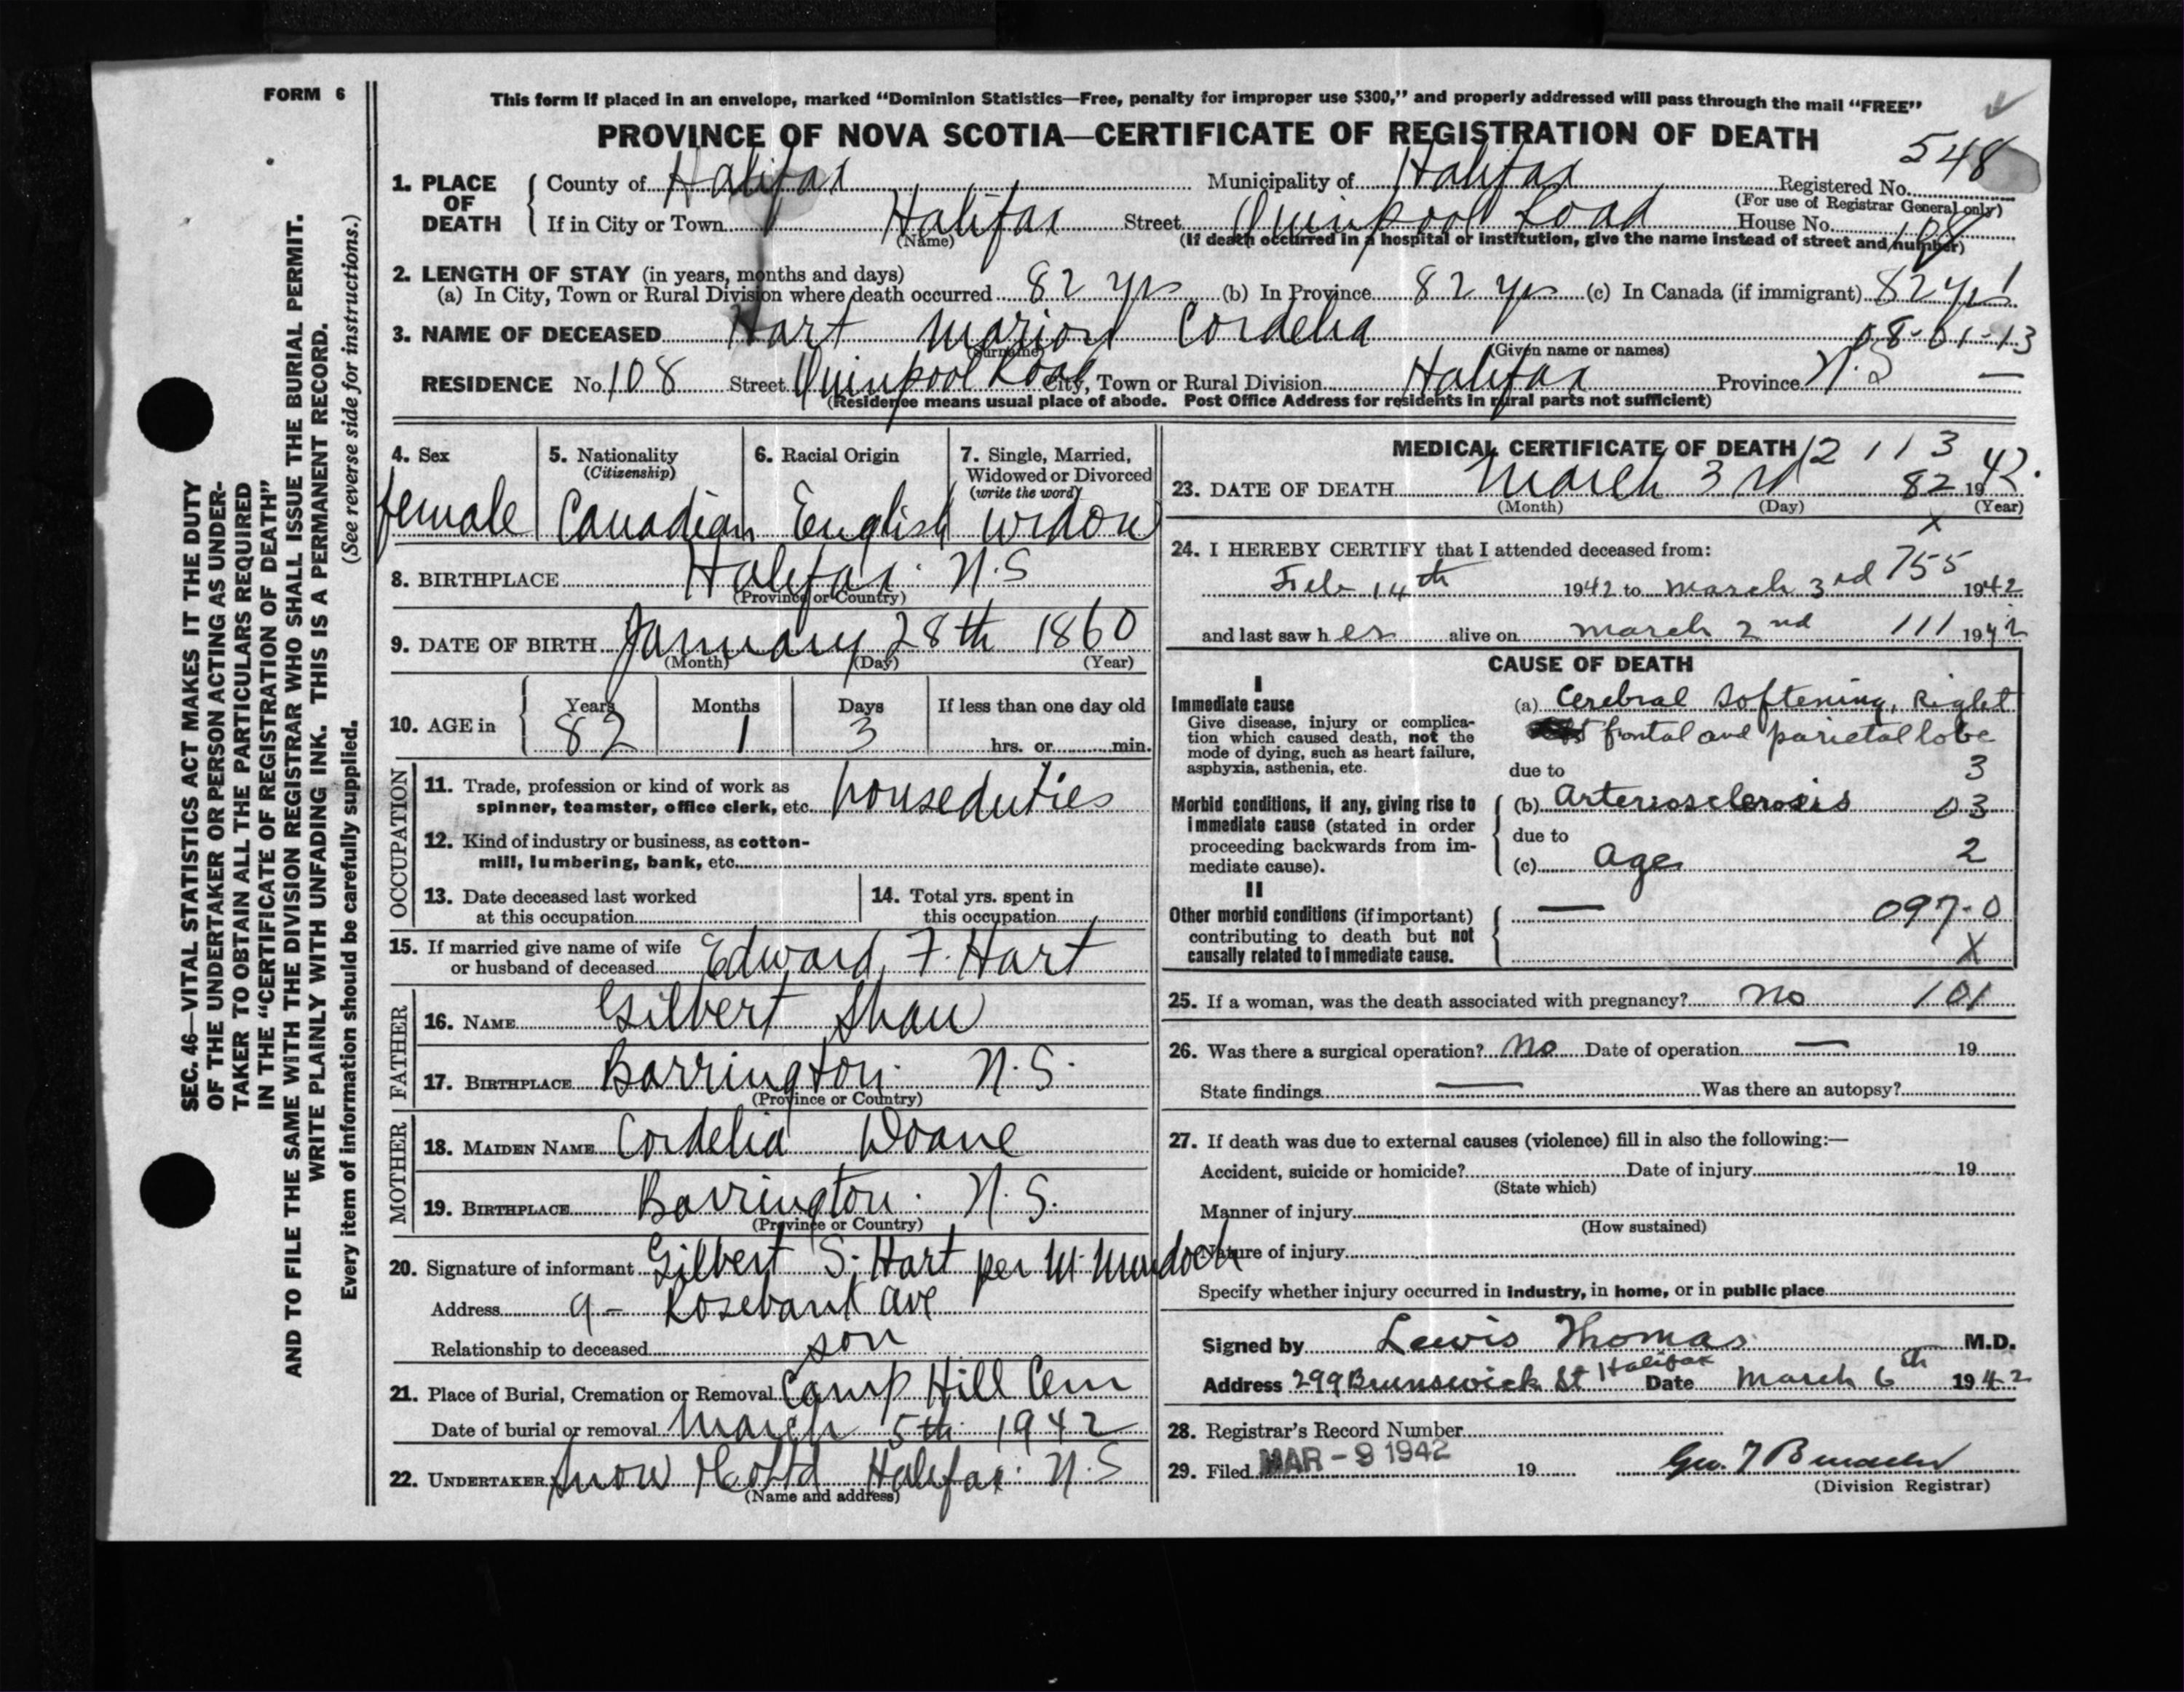 FORM 6
This form if placed in an envelope, marked “Dominion Statistics—Free, penalty for improper use $300,” and properly addressed will pass through the mail “FREE”
PROVINCE OF NOVA SCOTIA—CERTIFICATE OF REGISTRATION OF DEATH
548
1. PLACE OF DEATH County of Halifax Municipality of Halifax Registered No.
(For use of Registrar General only)
If in City or Town Halifax Street Quinpool Road House No. 108
(Name) (If death occurred in a hospital or institution, give the name instead of street and number)
2. LENGTH OF STAY (in years, months and days)
(a) In City, Town or Rural Division where death occurred 82 yrs (b) In Province 82 yrs (c) In Canada (if immigrant) 82 yrs
3. NAME OF DECEASED Hart Marion Cordelia 08-01-13
(Surname) (Given name or names)
RESIDENCE No. 108 Street Quinpool Road City, Town or Rural Division Halifax Province N.S —
(Residence means usual place of abode. Post Office Address for residents in rural parts not sufficient)
4. Sex 5. Nationality 6. Racial Origin 7. Single, Married,
(Citizenship) Widowed or Divorced
(write the word)
female Canadian English widow
8. BIRTHPLACE Halifax. N.S
(Province or Country)
9. DATE OF BIRTH January 28th 1860
(Month) (Day) (Year)
10. AGE in Years Months Days If less than one day old
82 1 3 hrs. or min.
OCCUPATION
11. Trade, profession or kind of work as
spinner, teamster, office clerk, etc. houseduties
12. Kind of industry or business, as cotton-
mill, lumbering, bank, etc.
13. Date deceased last worked 14. Total yrs. spent in
at this occupation this occupation
15. If married give name of wife
or husband of deceased Edward F. Hart
FATHER
16. NAME Gilbert Shaw
17. BIRTHPLACE Barrington. N.S.
(Province or Country)
MOTHER
18. MAIDEN NAME Cordelia Doane
19. BIRTHPLACE Barrington. N.S.
(Province or Country)
20. Signature of informant Gilbert S. Hart per M. Murdoch
Address 9- Rosebank Ave
Relationship to deceased son
21. Place of Burial, Cremation or Removal Camp Hill Cem
Date of burial or removal March 5th 1942
22. UNDERTAKER Snow & Co Ltd Halifax. N.S
(Name and address)
MEDICAL CERTIFICATE OF DEATH 12 113
23. DATE OF DEATH March 3rd 82 1942.
(Month) (Day) (Year)
X
24. I HEREBY CERTIFY that I attended deceased from:
Feb 14th 1942 to March 3rd 755 1942
and last saw her alive on March 2nd 111 1942
CAUSE OF DEATH
I
Immediate cause
Give disease, injury or complica-
tion which caused death, not the
mode of dying, such as heart failure,
asphyxia, asthenia, etc.
(a) Cerebral Softening, Right
frontal and parietal lobe
due to 3
Morbid conditions, if any, giving rise to
immediate cause (stated in order
proceeding backwards from im-
mediate cause).
(b) Arteriosclerosis 03
due to
(c) Age 2
II
Other morbid conditions (if important)
contributing to death but not
causally related to immediate cause.
— 097-0
X
25. If a woman, was the death associated with pregnancy? no 101
26. Was there a surgical operation? No Date of operation — 19
State findings — Was there an autopsy?
27. If death was due to external causes (violence) fill in also the following:—
Accident, suicide or homicide? Date of injury 19
(State which)
Manner of injury
(How sustained)
Nature of injury
Specify whether injury occurred in industry, in home, or in public place
Signed by Lewis Thomas M.D.
Address 299 Brunswick St Halifax Date March 6th 1942
28. Registrar's Record Number
29. Filed MAR -9 1942 19
(Division Registrar)
SEC. 46—VITAL STATISTICS ACT MAKES IT THE DUTY
OF THE UNDERTAKER OR PERSON ACTING AS UNDER-
TAKER TO OBTAIN ALL THE PARTICULARS REQUIRED
IN THE “CERTIFICATE OF REGISTRATION OF DEATH”
AND TO FILE THE SAME WITH THE DIVISION REGISTRAR WHO SHALL ISSUE THE BURIAL PERMIT.
WRITE PLAINLY WITH UNFADING INK. THIS IS A PERMANENT RECORD.
Every item of information should be carefully supplied. (See reverse side for instructions.)